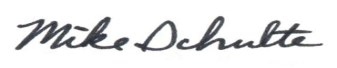 Mike Schulte